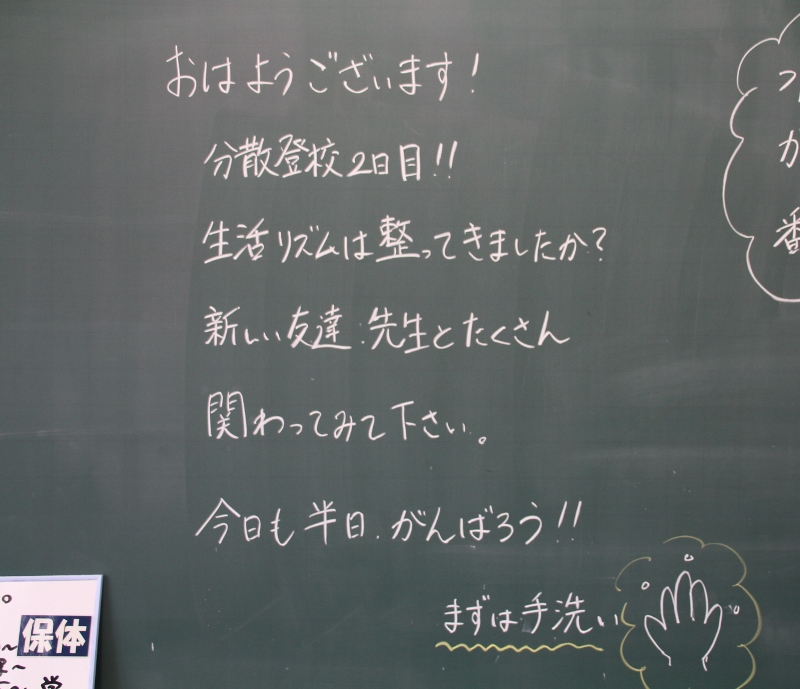 おはようございます！
分散登校2日目!!
生活リズムは整ってきましたか？
新しい友達・先生とたくさん
関わってみて下さい。
今日も半日、がんばろう!!
まずは手洗い
か
番
保体